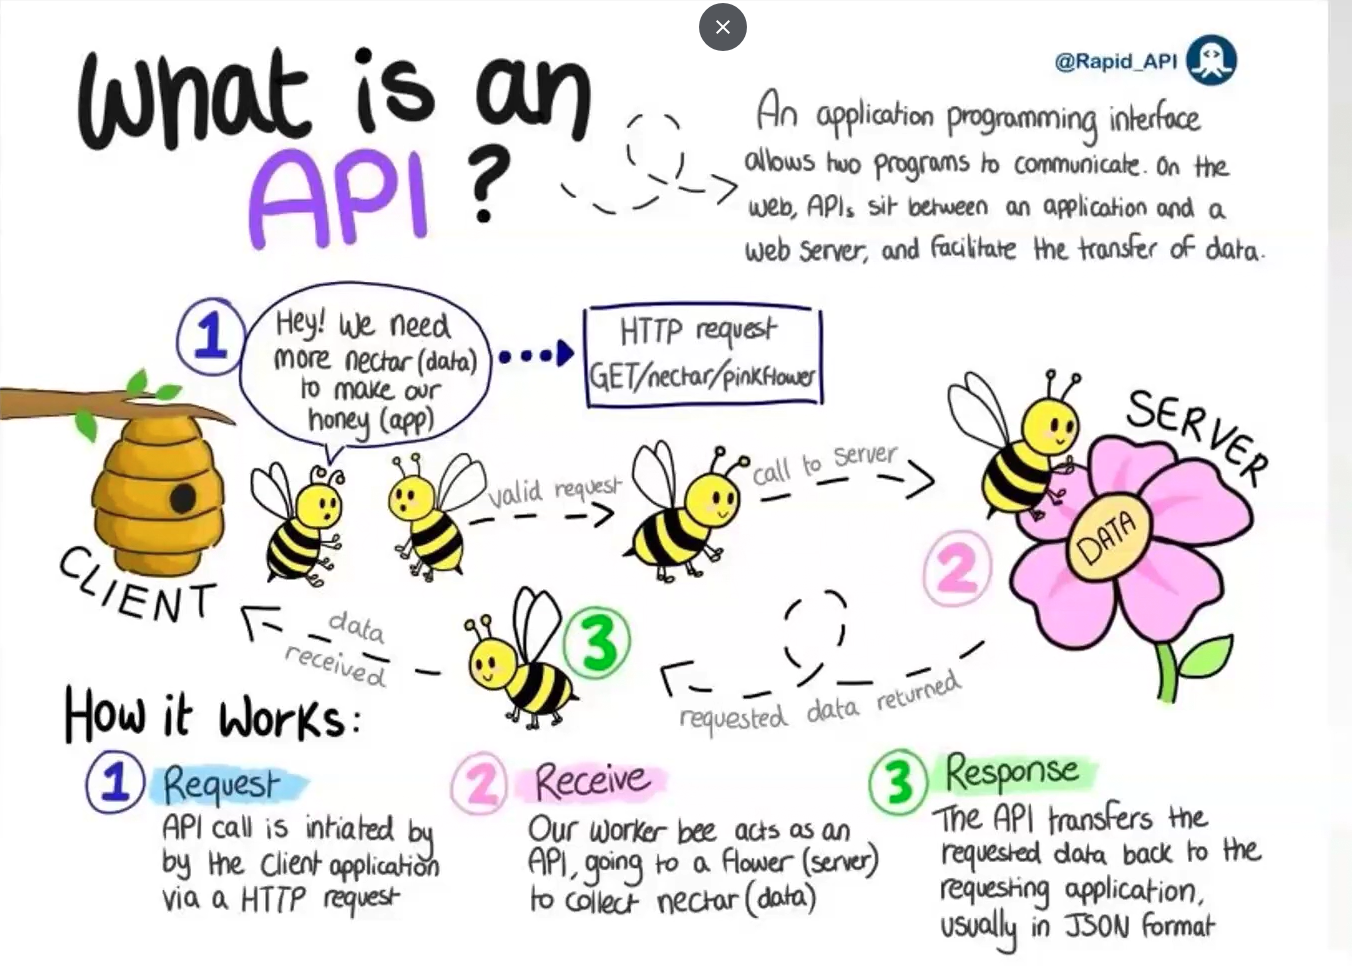 What is an
API ?
@Rapid_API
An application programming interface
allows two programs to communicate. On the
web, APIs sit between an application and a
web server, and facilitate the transfer of data.
1
Hey! We need
more nectar (data)
to make our
honey (app)
HTTP request
GET/nectar/pinkflower
SERVER
valid request
call to server
DATA
CLIENT
2
3
data
received
requested data returned
How it works:
1 Request
API call is intiated by
by the client application
via a HTTP request
2 Receive
Our worker bee acts as an
API, going to a flower (server)
to collect nectar (data)
3 Response
The API transfers the
requested data back to the
requesting application,
usually in JSON format